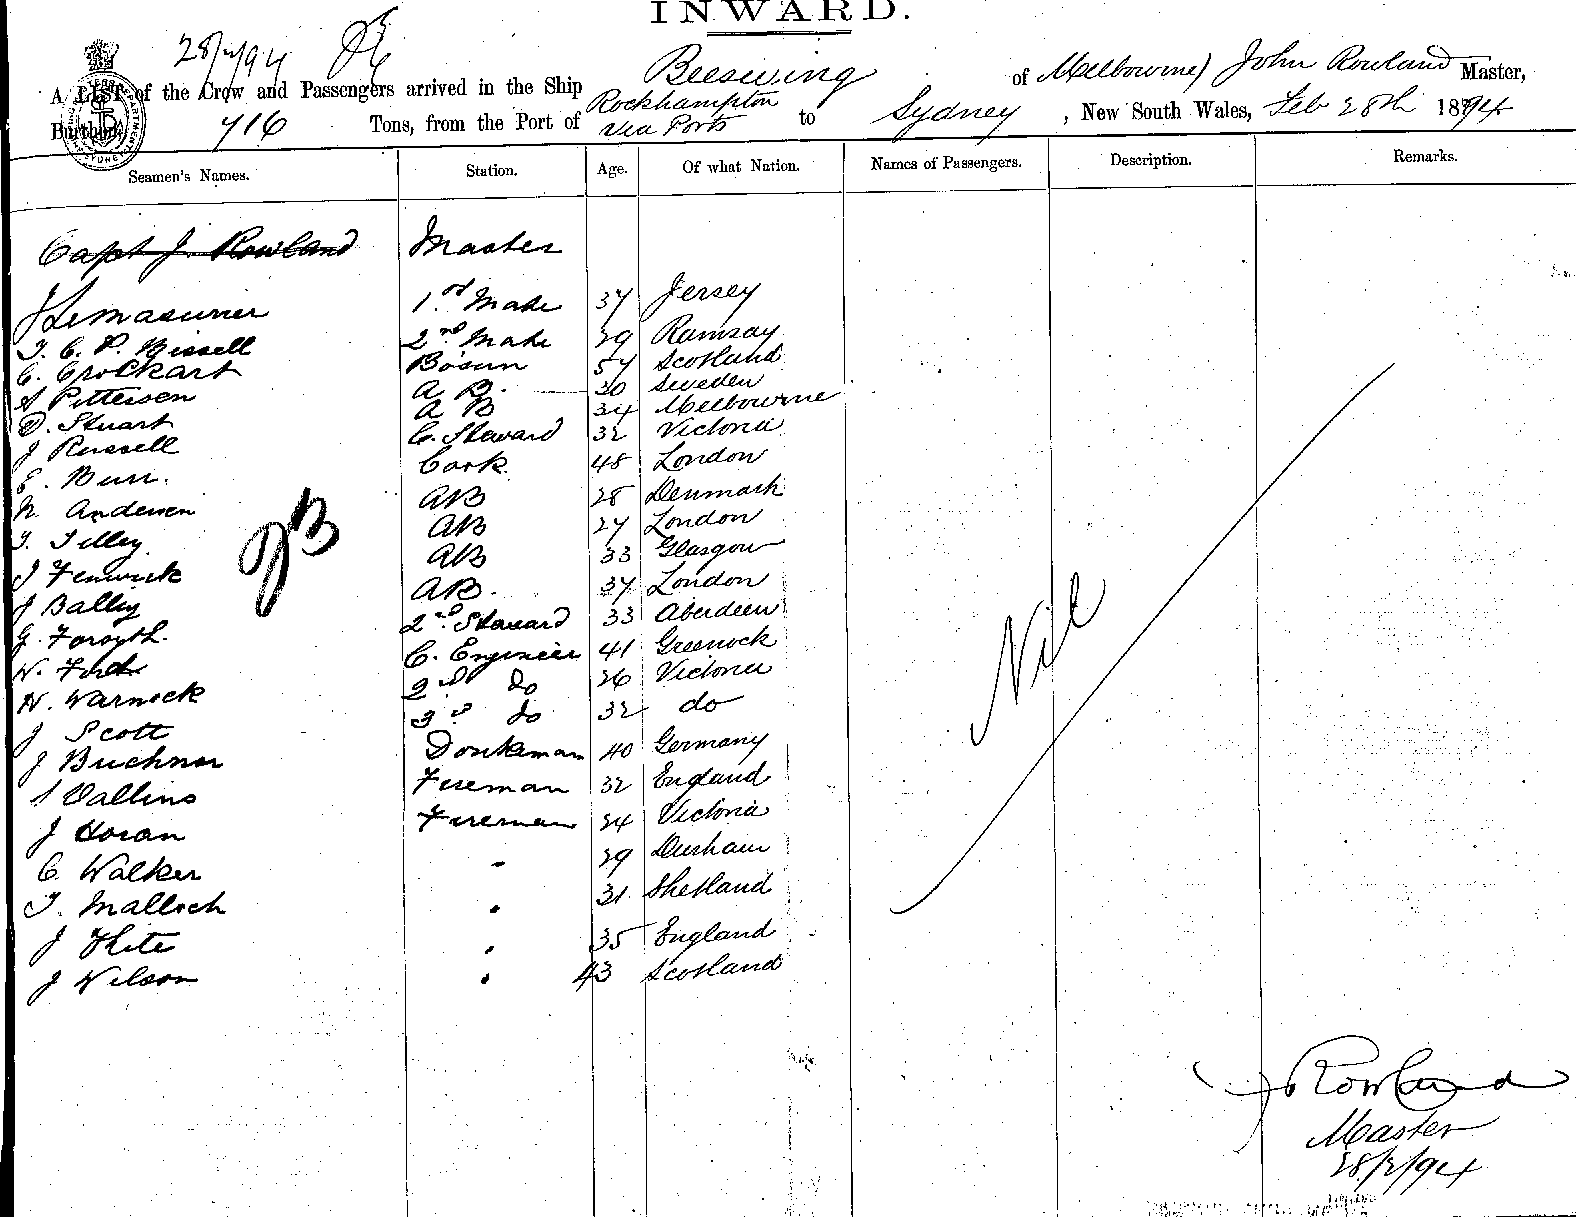 INWARD.
28/2/94
A LIST of the Crew and Passengers arrived in the Ship Beeswing of Melbourne, John Rowland Master,
Burthen, 716 Tons, from the Port of Rockhampton via Ports to Sydney, New South Wales, Feb 28th 1894
Seamen's Names. Station. Age. Of what Nation. Names of Passengers. Description. Remarks.
Capt J. Rowland Master
J Lemasurier 1st Mate 37 Jersey
T. C. P. Bissell 2nd Mate 29 Ramsay
C. Crockart Bosun 57 Scotland
A Pettersen A B. 30 Sweden
D. Stuart A B 34 Melbourne
J Russell C. Steward 32 Victoria
E. Burr. Cook 48 London
N. Andersen AB 28 Denmark
T. Tilley AB 27 London
J Fenwick AB 33 Glasgow
J Bailey AB. 37 London
G. Forsyth. 2nd Steward 33 Aberdeen
W. Ford C. Engineer 41 Greenock
W. Warnock 2nd do 26 Victoria
J Scott 3rd do 32 do
J Buchner Donkeman 40 Germany
Vallins Fireman 32 England
J Horan Fireman 24 Victoria
C. Walker 29 Durham
T. Malloch 31 Shetland
J White 35 England
J Wilson 43 Scotland
JB
Nil
J Rowland
Master
28/2/94